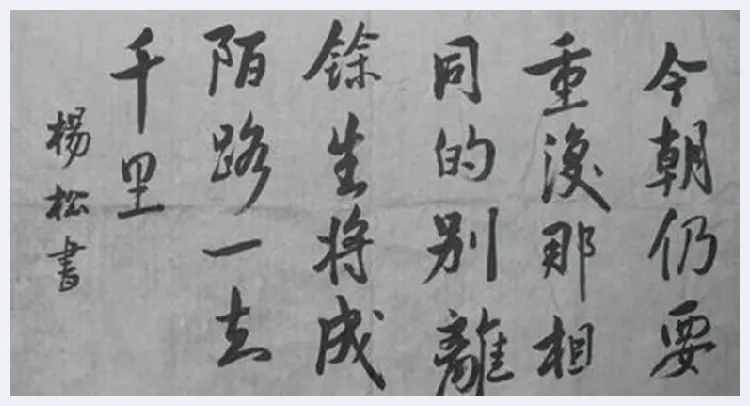 今朝仍要
重復那相
同的别離
餘生将成
陌路一去
千里
楊松書